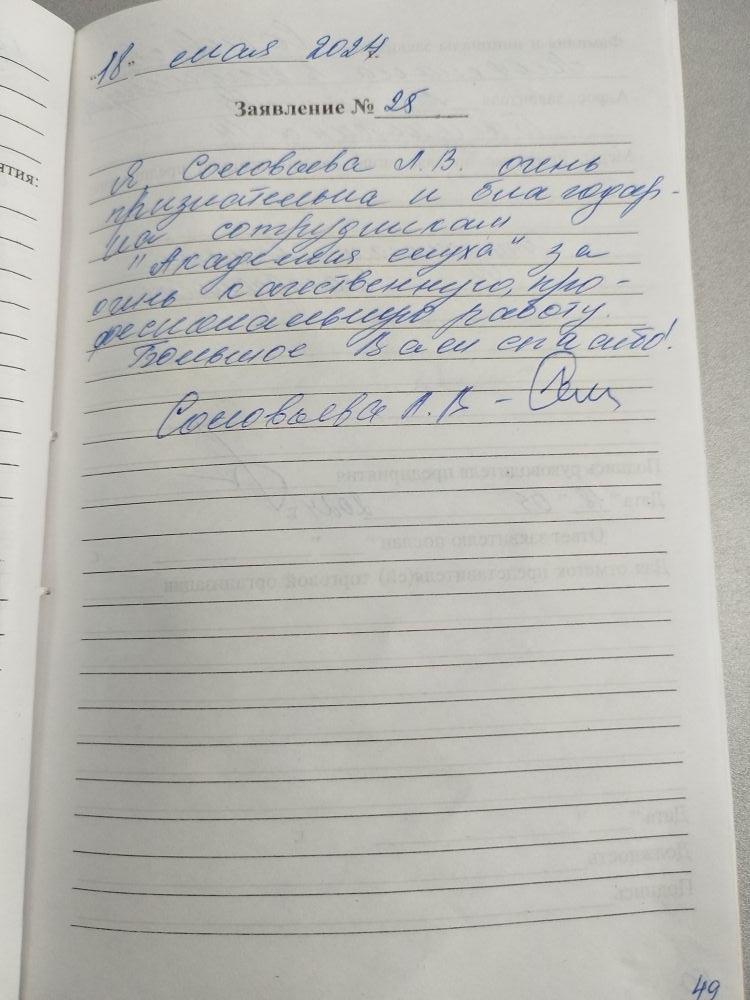 "18" мая 2024
Заявление № 25
Я Соловьева Л.В. очень
признательна и благодар-
на сотрудникам
"Академия слуха" за
очень качественную, про-
фессиональную работу.
Большое Вам спасибо!
Соловьева Л.В -
ятия:
49